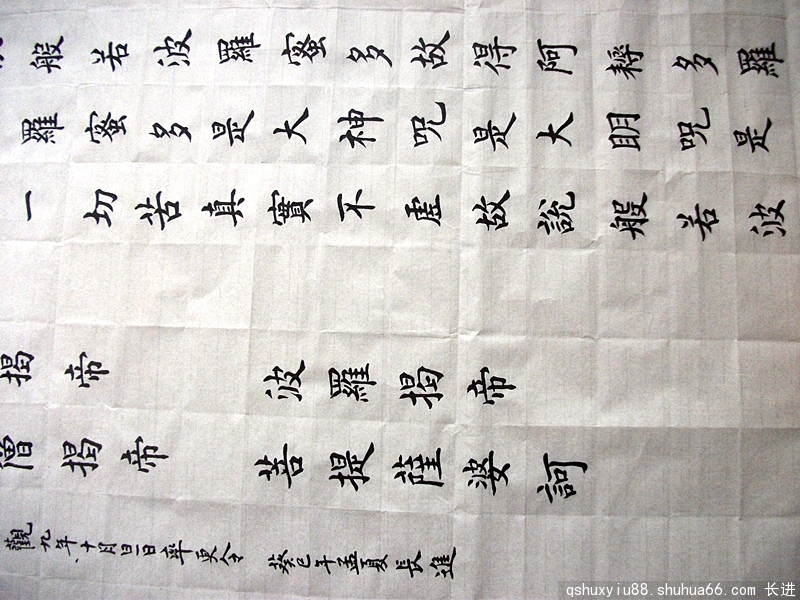 般若波羅蜜多故得阿耨多羅
羅蜜多是大神咒是大明咒是
一切苦真實不虛故說般若波
揭帝 波羅揭帝
僧揭帝 菩提薩婆訶
觀九年十月旦日率更令 癸巳年孟夏長進
qshuxyiu88.shuhua66.com 长进